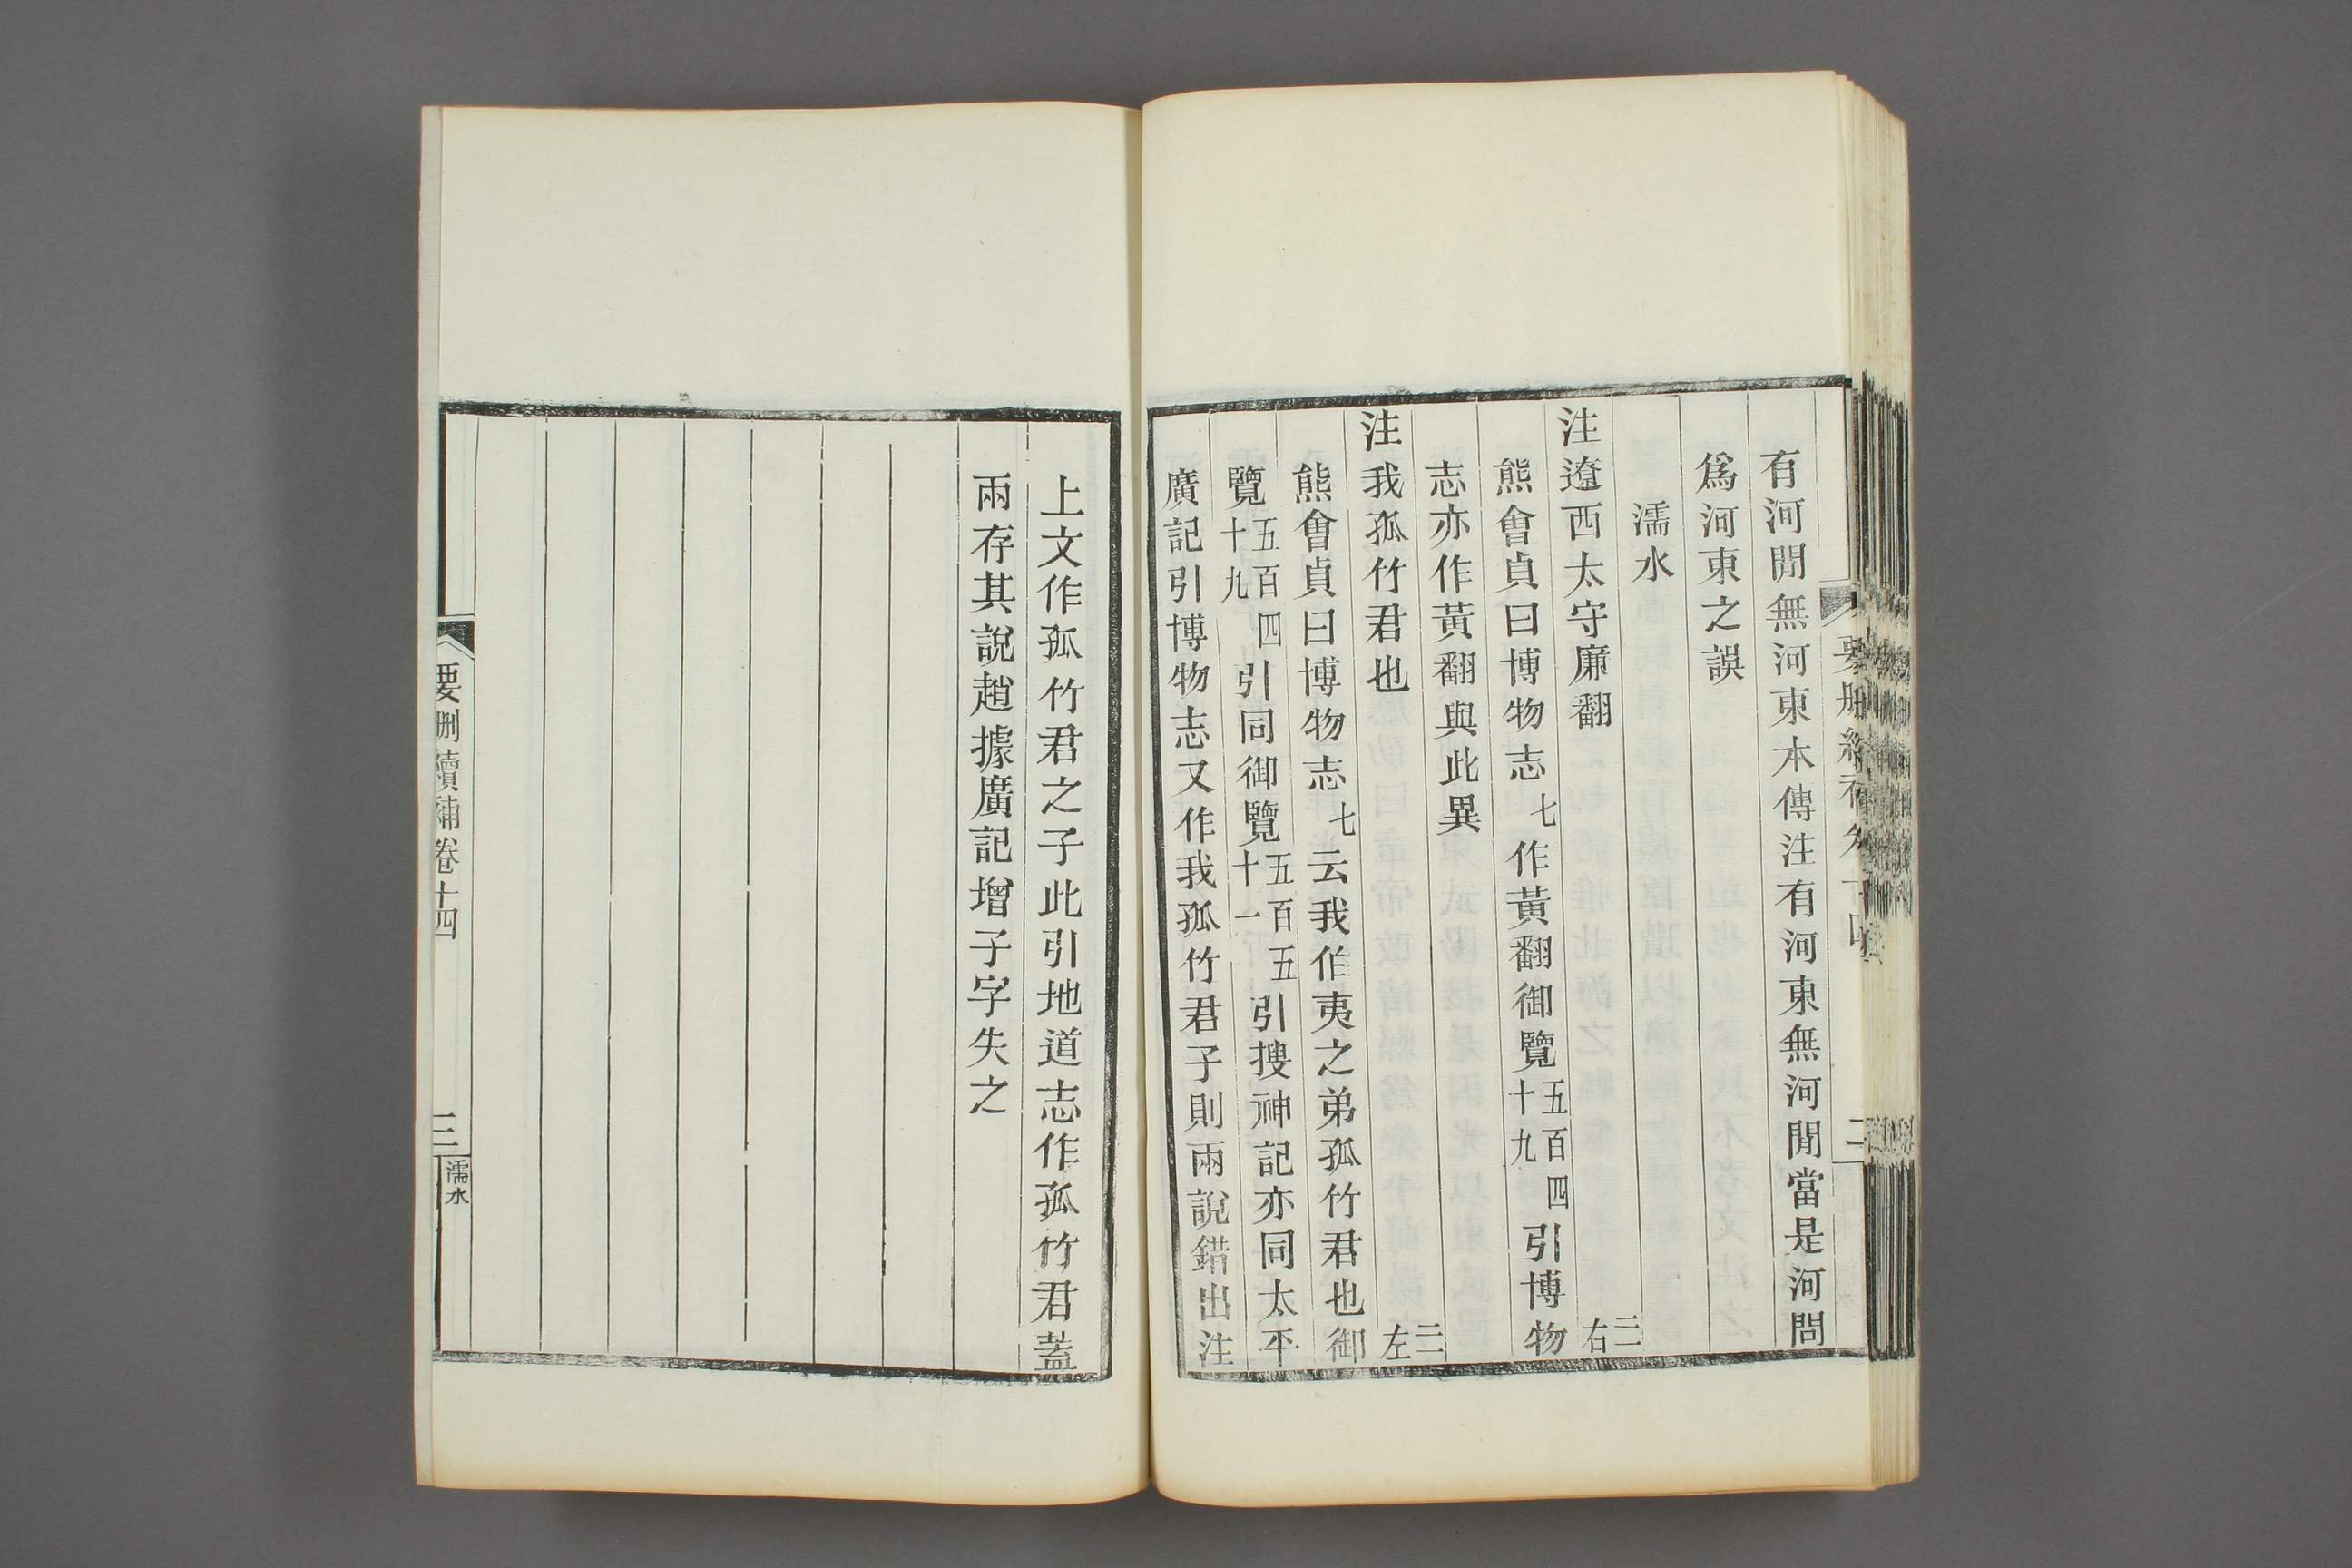 有河閒無河東本傳注有河東無河閒當是河問
爲河東之誤
濡水
注遼西太守廉翻 三二右
熊會貞曰博物志七作黃翻御覽五百四十九引博物
志亦作黃翻與此異
注我孤竹君也 三二左
熊會貞曰博物志七云我伯夷之弟孤竹君也御
覽五百四十九引同御覽五百五十一引搜神記亦同太平
廣記引博物志又作我孤竹君子則兩說錯出注
上文作孤竹君之子此引地道志作孤竹君蓋
兩存其說趙據廣記增子字失之
要刪續補卷十四 三 濡水